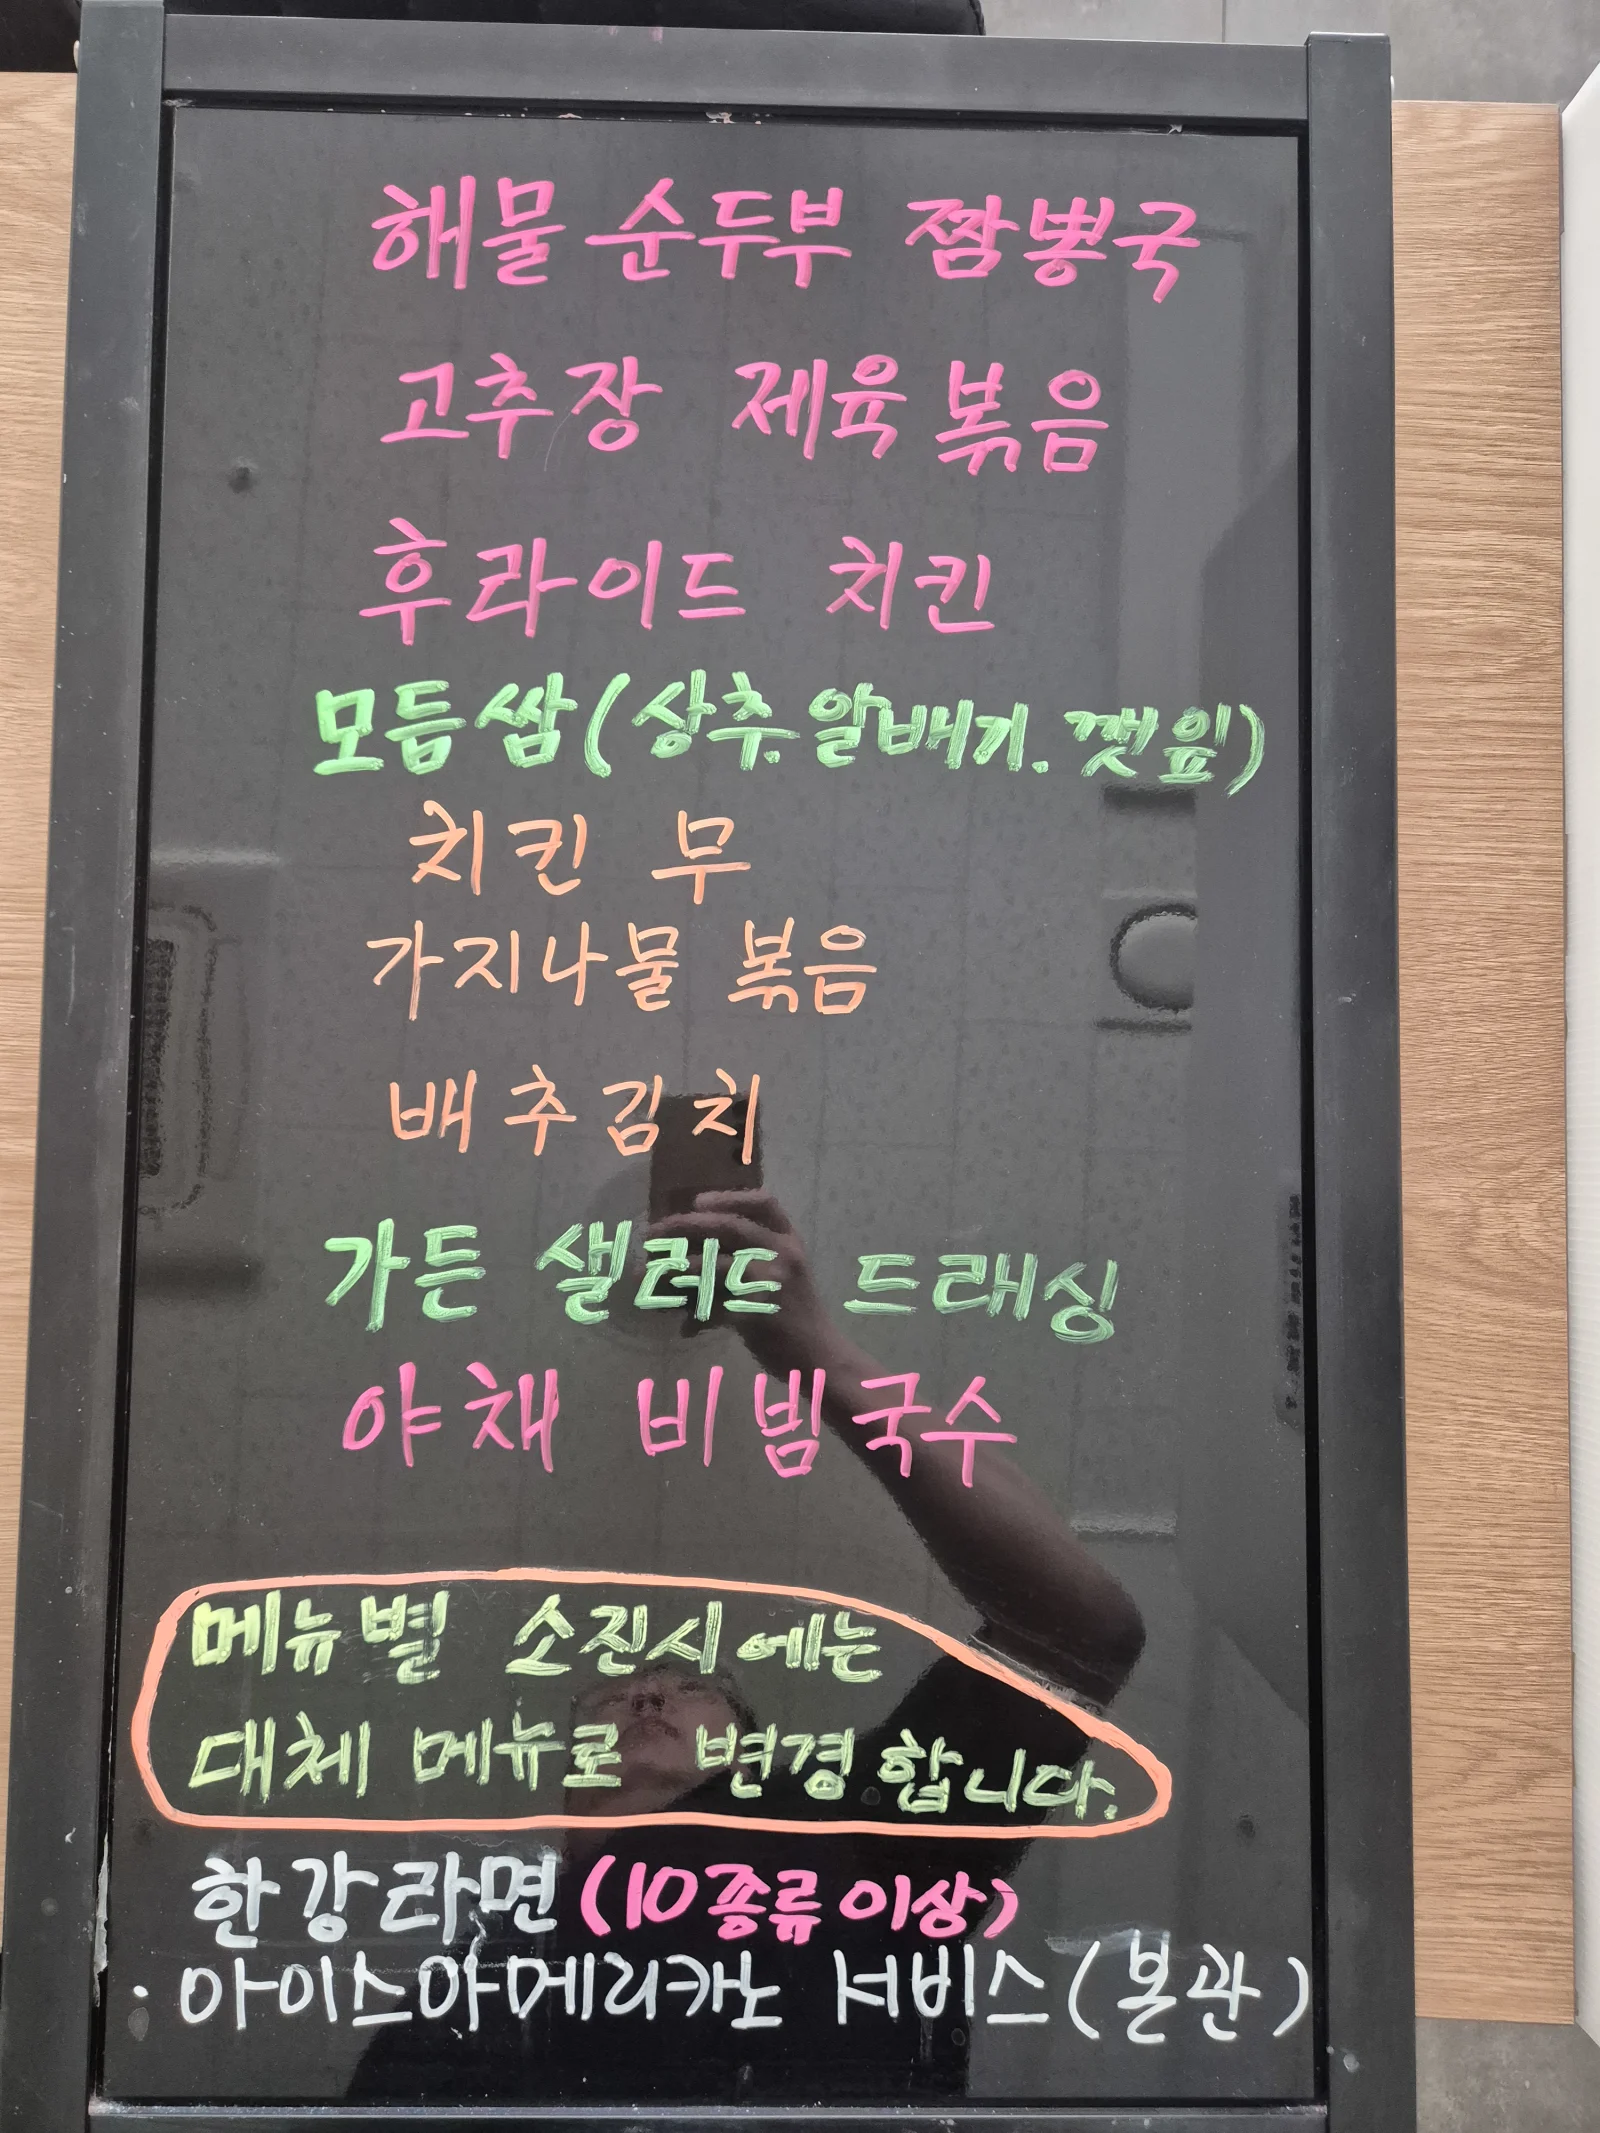 해물 순두부 짬뽕국
고추장 제육볶음
후라이드 치킨
모듬쌈(상추.알배기.깻잎)
치킨 무
가지나물 볶음
배추김치
가든 샐러드 드래싱
야채 비빔국수
메뉴별 소진시에는
대체 메뉴로 변경합니다.
한강라면(10종류이상)
·아이스아메리카노 서비스(본관)